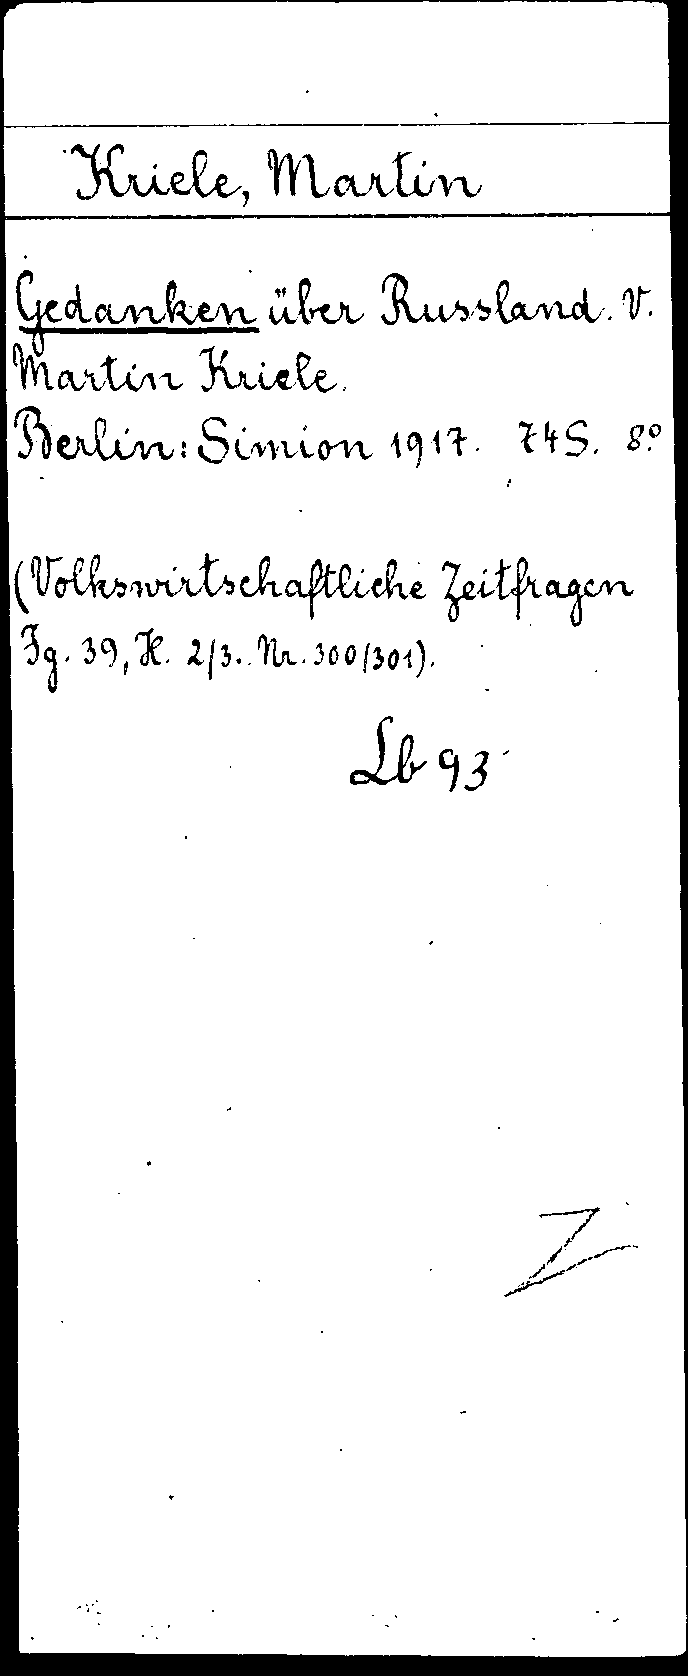 Kriele, Martin
Gedanken über Russland. V.
Martin Kriele.
Berlin: Simion 1917. 74 S. 8°
(Volkswirtschaftliche Zeitfragen
Jg. 39, H. 2/3. Nr. 300/301).
Lb 93
Z